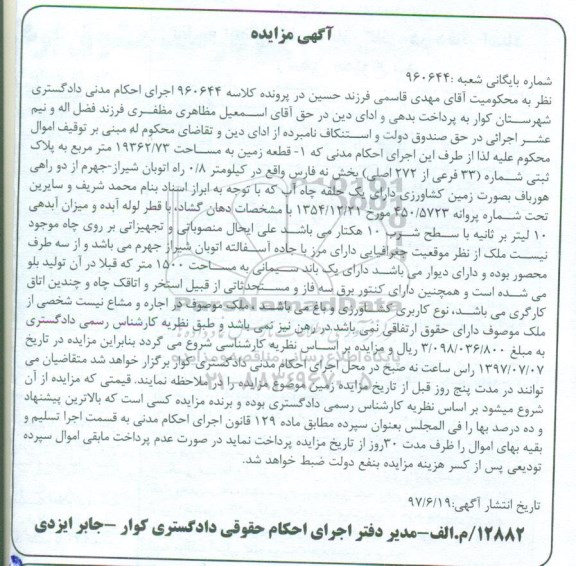 آگهی مزایده
شماره بایگانی شعبه :۹۶۰۶۴۴
نظر به محکومیت آقای مهدی قاسمی فرزند حسین در پرونده کلاسه ۹۶۰۶۴۴ اجرای احکام مدنی دادگستری
شهرستان کوار به پرداخت بدهی و ادای دین در حق آقای اسمعیل مظاهری مظفری فرزند فضل اله و نیم
عشر اجرائی در حق صندوق دولت و استنکاف نامبرده از ادای دین و تقاضای محکوم له مبنی بر توقیف اموال
محکوم علیه لذا از طرف این اجرای احکام مدنی که ۱- قطعه زمین به مساحت ۱۹۳۶۲/۷۳ متر مربع به پلاک
ثبتی شماره (۳۳ فرعی از ۲۷۲ اصلی) بخش نه فارس واقع در کیلومتر ۰/۸ راه اتوبان شیراز-جهرم از دو راهی
هورباف بصورت زمین کشاورزی دارای یک حلقه چاه آب که با توجه به ابراز اسناد بنام محمد شریف و سایرین
تحت شماره پروانه ۴۵۰/۵۷۲۳ مورخ ۱۳۵۴/۱۲/۲۱ با مشخصات دهان گشاد، با قطر لوله آبده و میزان آبدهی
۱۰ لیتر بر ثانیه با سطح شرب ۱۰ هکتار می باشد علی ایحال منصوباتی و تجهیزاتی بر روی چاه موجود
نیست ملک از نظر موقعیت جغرافیایی دارای مرز با جاده آسفالته اتوبان شیراز جهرم می باشد و از سه طرف
محصور بوده و دارای دیوار می باشد دارای یک باند سیمانی به مساحت ۱۵۰۰ متر که قبلا در آن تولید بلو
می شده است و همچنین دارای کنتور برق سه فاز و مستحدثاتی از قبیل استخر و اتاقک چاه و چندین اتاق
کارگری می باشد، نوع کاربری کشاورزی و باغ می باشد . ملک موصوف در اجاره و مشاع نیست شخصی از
ملک موصوف دارای حقوق ارتفاقی نمی باشد در رهن نیز نمی باشد و طبق نظریه کارشناس رسمی دادگستری
به مبلغ ۳/۰۹۸/۰۳۶/۸۰۰ ریال و مزایده بر اساس نظریه کارشناسی شروع می گردد بنابراین مزایده در تاریخ
۱۳۹۷/۰۷/۰۷ راس ساعت نه صبح در محل اجرای احکام مدنی دادگستری کوار برگزار خواهد شد متقاضیان می
توانند در مدت پنج روز قبل از تاریخ مزایده زمین موضوع مزایده را ملاحظه نمایند. قیمتی که مزایده از آن
شروع میشود بر اساس نظریه کارشناس رسمی دادگستری بوده و برنده مزایده کسی است که بالاترین پیشنهاد
و ده درصد بها را فی المجلس بعنوان سپرده مطابق ماده ۱۲۹ قانون اجرای احکام مدنی به قسمت اجرا تسلیم و
بقیه بهای اموال را ظرف مدت ۳۰روز از تاریخ مزایده پرداخت نماید در صورت عدم پرداخت مابقی اموال سپرده
تودیعی پس از کسر هزینه مزایده بنفع دولت ضبط خواهد شد.
تاریخ انتشار آگهی:۹۷/۶/۱۹
۱۲۸۸۲/م.الف-مدیر دفتر اجرای احکام حقوقی دادگستری کوار -جابر ایزدی